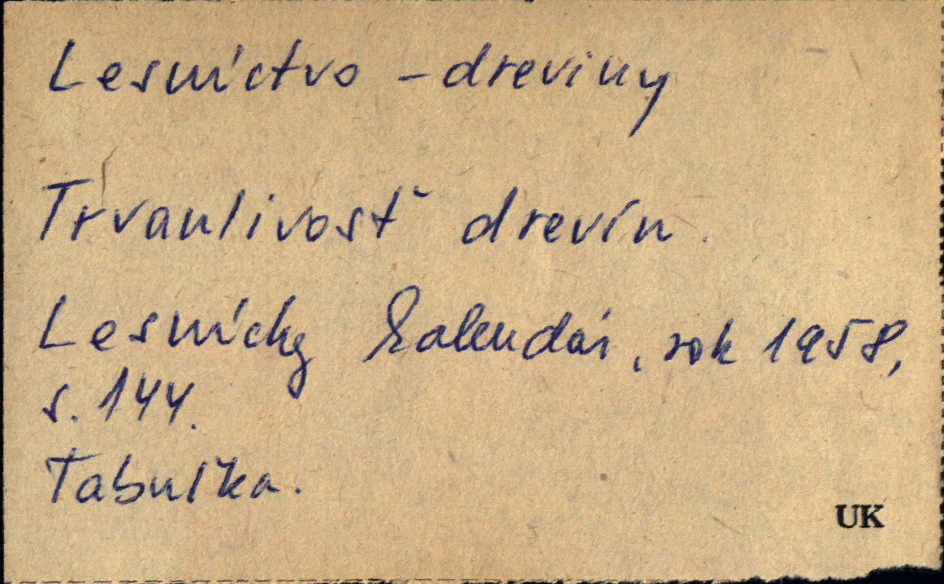 Lesníctvo - dreviny
Trvanlivosť drevín.
Lesnícky kalendár, rok 1958,
s. 144.
Tabuľka.
UK